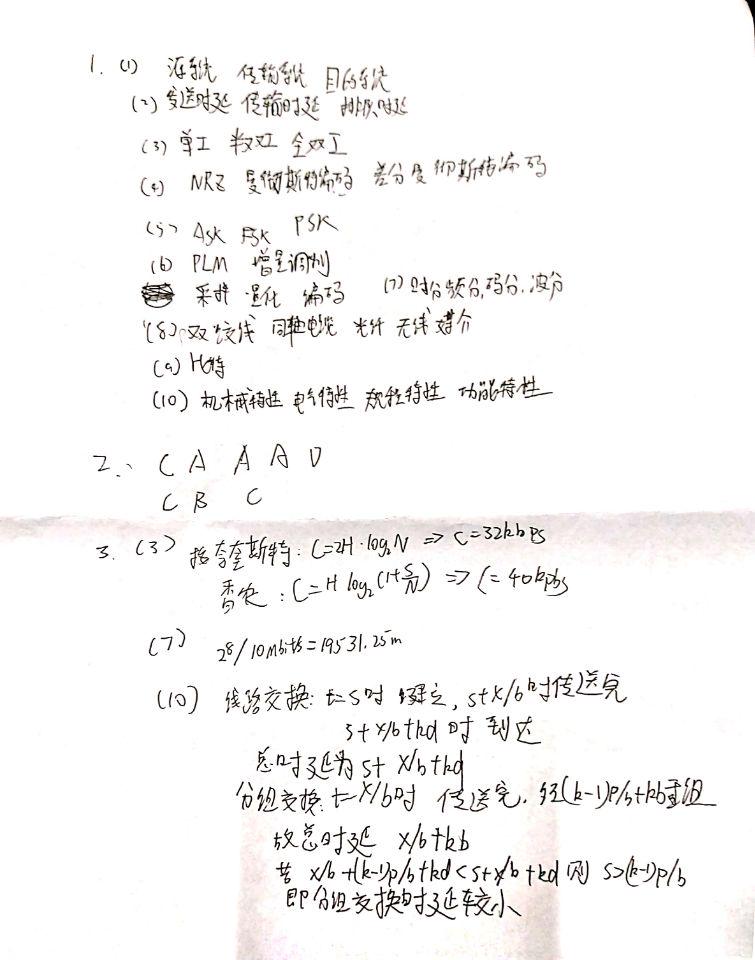 1. (1) 源系统 传输系统 目的系统
(2) 发送时延 传输时延 排队时延
(3) 单工 半双工 全双工
(4) NRZ 曼彻斯特编码 差分曼彻斯特编码
(5) ASK FSK PSK
(6) PLM 增量调制
采样 量化 编码 (7) 时分,频分,码分,波分
(8) 双绞线 同轴电缆 光纤 无线媒介
(9) 比特
(10) 机械特性 电气特性 规程特性 功能特性
2. C A A A D
C B C
3. (3) 按奈奎斯特: C=2H·log₂N ⇒ C=32kbps
香农: C=H log₂(1+S/N) ⇒ C=40kpbs
(7) 28/10Mbits=19531.25m
(10) 线路交换: t=s时 建立, s+x/b时传送完
s+x/b+kd时 到达
总时延为 s+x/b+kd
分组交换: t=x/b时 传送完, 经(k-1)p/b+kb重组
故总时延 x/b+kb
若 x/b+(k-1)p/b+kd<s+x/b+kd 则 s>(k-1)p/b
即分组交换时延较小